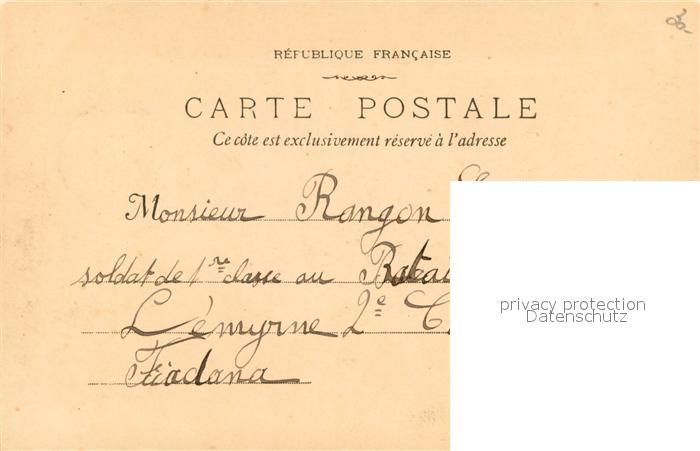 RÉPUBLIQUE FRANÇAISE
CARTE POSTALE
Ce côte est exclusivement réservé à l'adresse
Monsieur Rangon
soldat de 1re classe au Batai
L'émyrne 2e C
Fiadana
privacy protection
Datenschutz